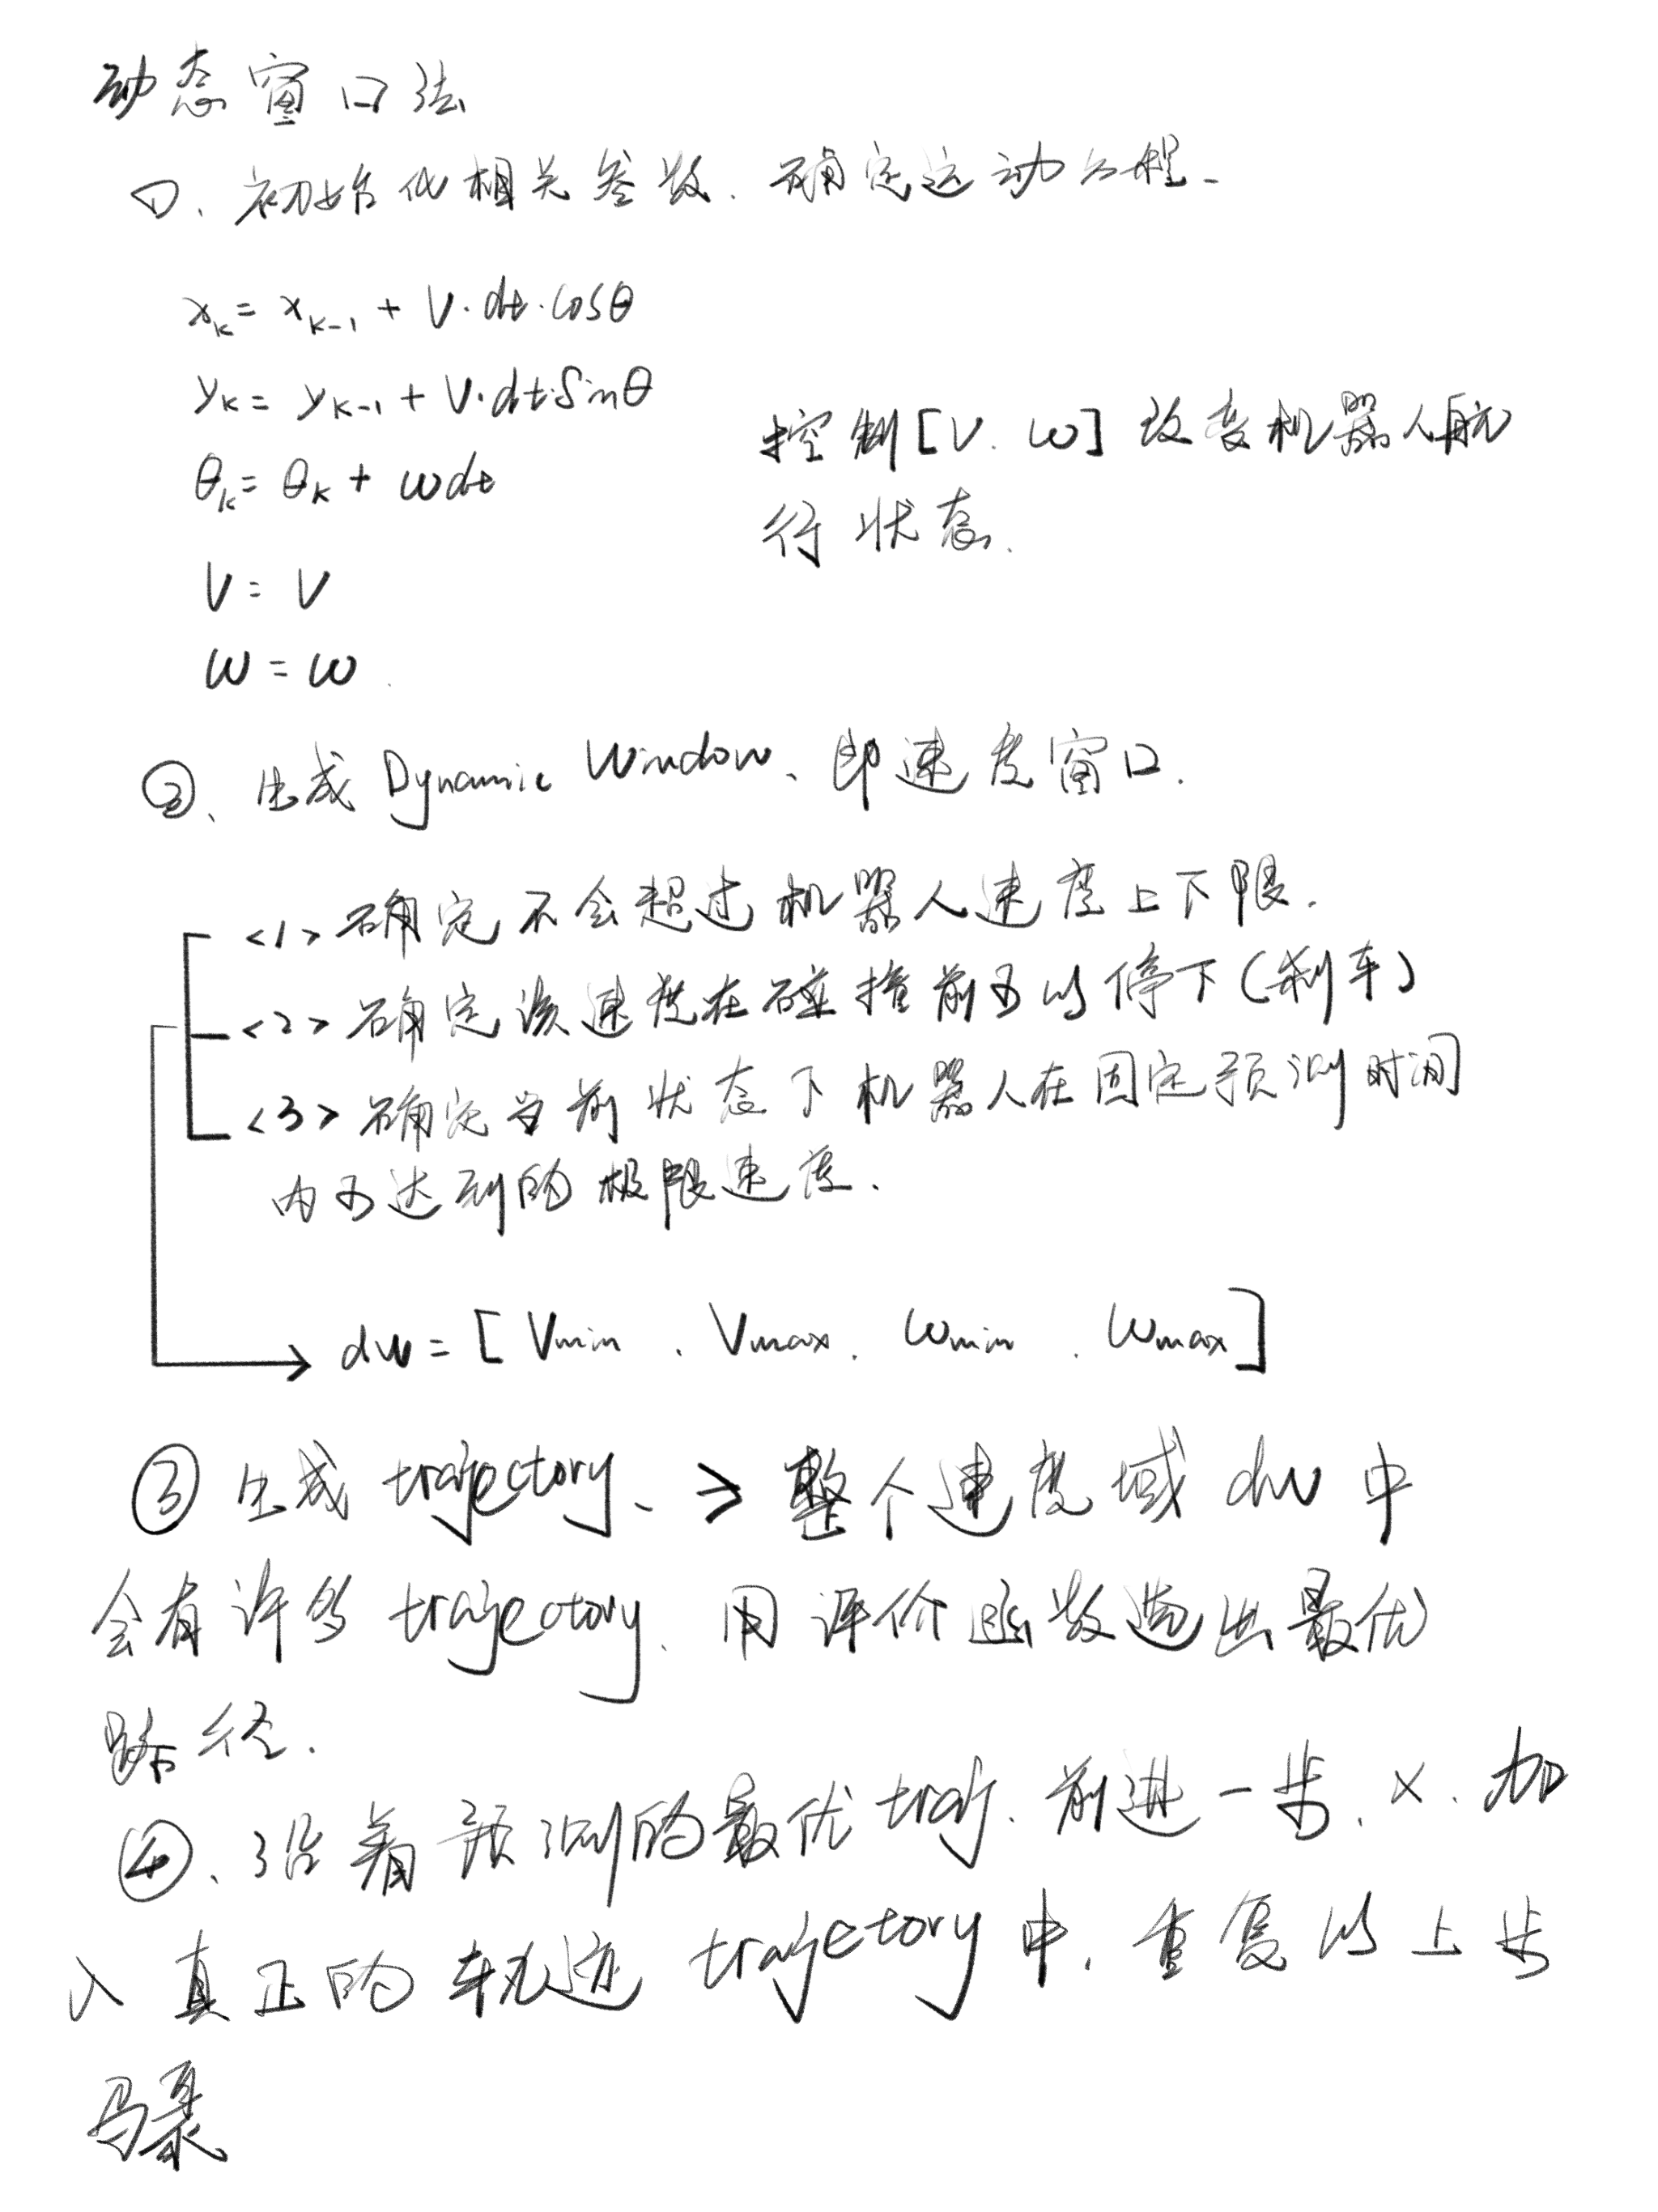 动态窗口法
①、初始化相关参数.确定运动方程.
x_k = x_{k-1} + V·dt·cosθ
y_k = y_{k-1} + V·dt·sinθ
θ_k = θ_k + ωdt
V = V
ω = ω.
控制[V. ω]改变机器人航
行状态.
②、生成 Dynamic Window、即速度窗口.
<1>确定不会超过机器人速度上下限.
<2>确定该速度在碰撞前可以停下(刹车)
<3>确定当前状态下机器人在固定预测时间
内可达到的极限速度.
dw = [Vmin . Vmax . ωmin . ωmax]
③ 生成 trajectory、 > 整个速度域 dw 中
会有许多 trajectory. 用评价函数选出最优
路径.
④、沿着预测的最优 traj. 前进一步. x. 加
入真正的轨迹 trajectory 中. 重复以上步
骤